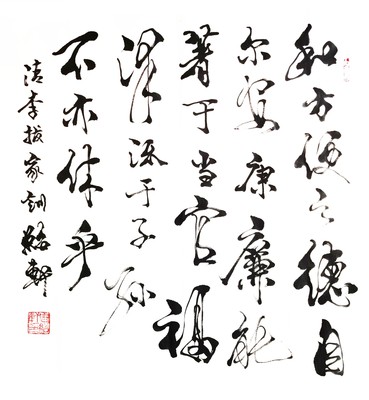 和方便之德自
尔安康廉能
著于当官福
泽流于子孙
不亦休乎
清李拔家训 轩